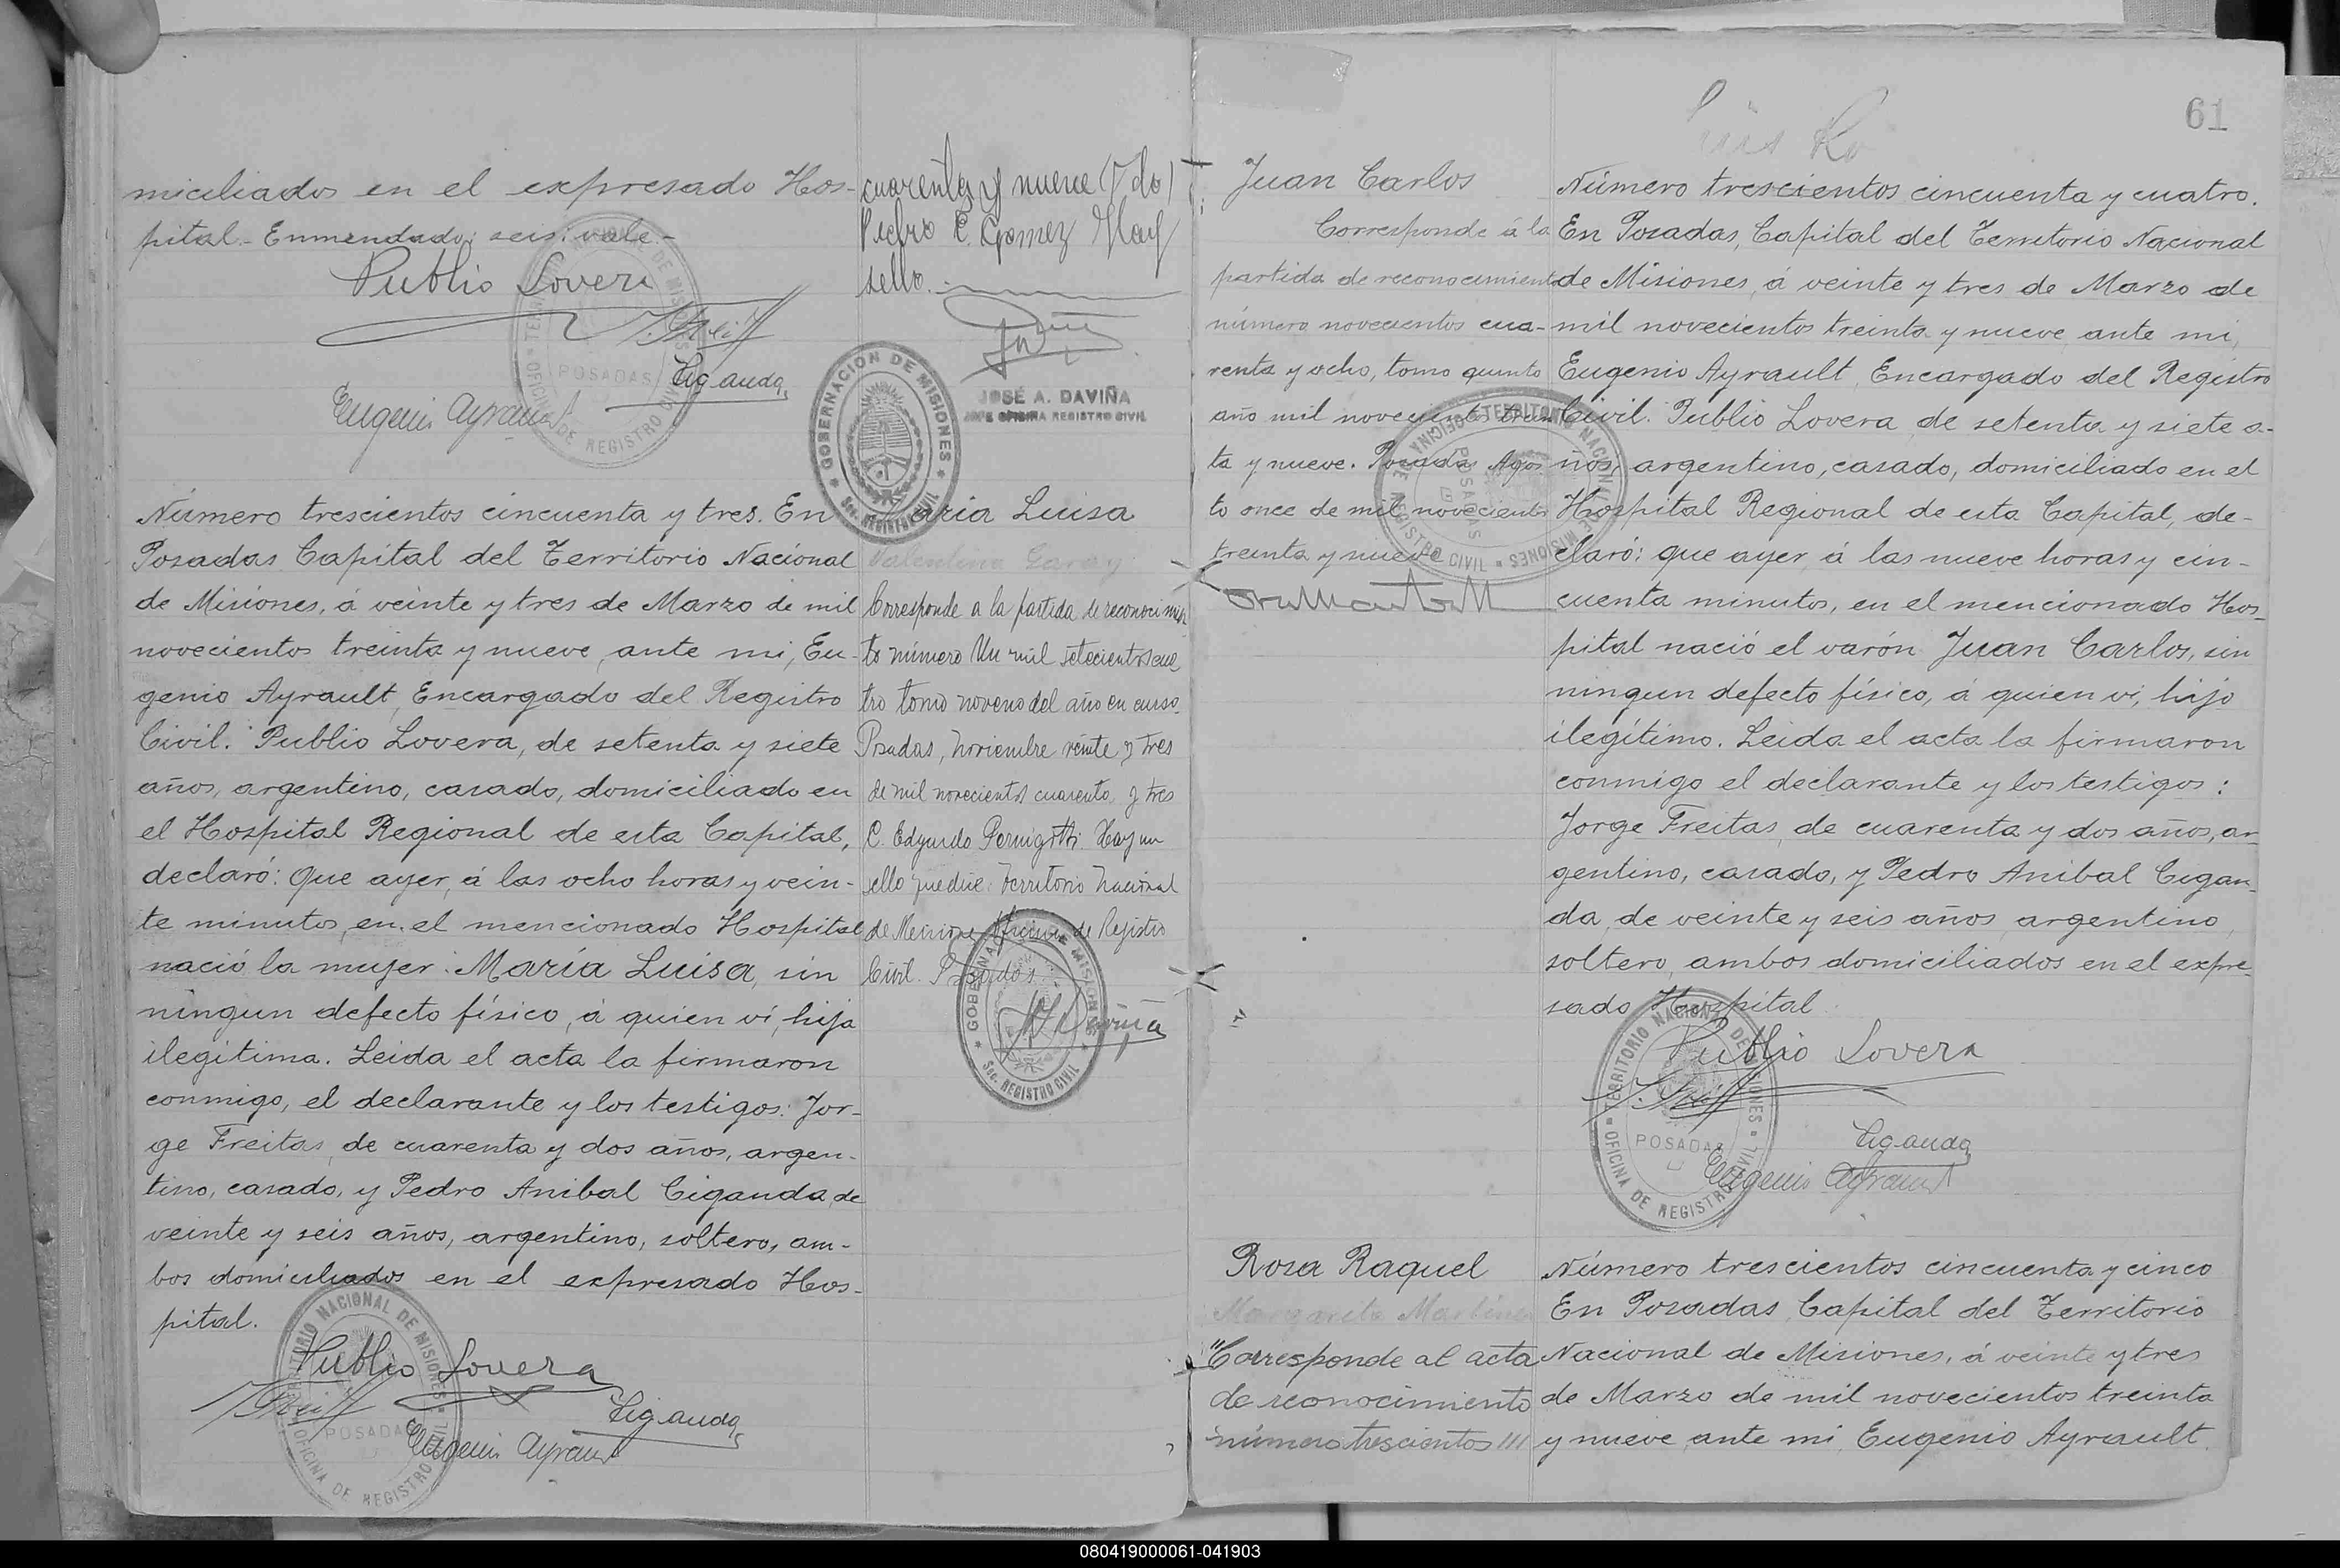 miciliados en el expresado Hos-
pital - Enmendado: seis: vale.-
Publio Lovera
Ciganda
Eugenio Ayrault
TERRITORIO NACIONAL DE MISIONES
OFICINA DE REGISTRO CIVIL
POSADAS
cuarenta y nueve (7 do)
Pedro C. Gomez Hay
sello.
JOSÉ A. DAVIÑA
JEFE OFICINA REGISTRO CIVIL
GOBERNACION DE MISIONES
Sec. REGISTRO CIVIL
Número trescientos cincuenta y tres. En
Posadas Capital del Territorio Nacional
de Misiones, á veinte y tres de Marzo de mil
novecientos treinta y nueve, ante mi, Eu-
genio Ayrault, Encargado del Registro
Civil. Publio Lovera, de setenta y siete
años, argentino, casado, domiciliado en
el Hospital Regional de esta Capital,
declaró: Que ayer, á las ocho horas y vein-
te minutos, en el mencionado Hospital
nació la mujer: María Luisa, sin
ningun defecto físico, á quien ví, hija
ilegítima. Leida el acta la firmaron
conmigo, el declarante y los testigos: Jor-
ge Freitas, de cuarenta y dos años, argen-
tino, casado, y Pedro Anibal Ciganda, de
veinte y seis años, argentino, soltero, am-
bos domiciliados en el expresado Hos-
pital.
Publio Lovera
Ciganda
Eugenio Ayrault
TERRITORIO NACIONAL DE MISIONES
OFICINA DE REGISTRO CIVIL
POSADAS
María Luisa
Valentina Garay
Corresponde a la partida de reconocimien
to número Un mil setecientos cua
tro tomo noveno del año en curso.
Posadas, Noviembre veinte y tres
de mil novecientos cuarenta y tres
C. Edgardo Pernigotti. Hay un
sello que dice: Territorio Nacional
de Misiones Oficina de Registro
Civil. Posadas
GOBERNACION DE MISIONES
Sec. REGISTRO CIVIL
61
Juan Carlos
Corresponde á la
partida de reconocimiento
número novecientos cua-
renta y ocho, tomo quinto
año mil novecientos trein
ta y nueve. Posadas Agos
to once de mil novecientos
treinta y nueve
Número trescientos cincuenta y cuatro.
En Posadas, Capital del Territorio Nacional
de Misiones, á veinte y tres de Marzo de
mil novecientos treinta y nueve, ante mi,
Eugenio Ayrault, Encargado del Registro
Civil. Publio Lovera, de setenta y siete a-
ños, argentino, casado, domiciliado en el
Hospital Regional de esta Capital, de-
claró: que ayer, á las nueve horas y cin-
cuenta minutos, en el mencionado Hos-
pital nació el varón Juan Carlos, sin
ningun defecto físico, á quien vi, hijo
ilegítimo. Leida el acta la firmaron
conmigo el declarante y los testigos:
Jorge Freitas, de cuarenta y dos años, ar-
gentino, casado, y Pedro Anibal Cigan-
da, de veinte y seis años, argentino,
soltero, ambos domiciliados en el expre-
sado Hospital.
Publio Lovera
Ciganda
Eugenio Ayrault
TERRITORIO NACIONAL DE MISIONES
OFICINA DE REGISTRO CIVIL
POSADAS
Rosa Raquel
Margarita Martinez
"Corresponde al acta
de reconocimiento
número trescientos ///
Número trescientos cincuenta y cinco
En Posadas, Capital del Territorio
Nacional de Misiones, á veinte y tres
de Marzo de mil novecientos treinta
y nueve, ante mi, Eugenio Ayrault,
080419000061-041903